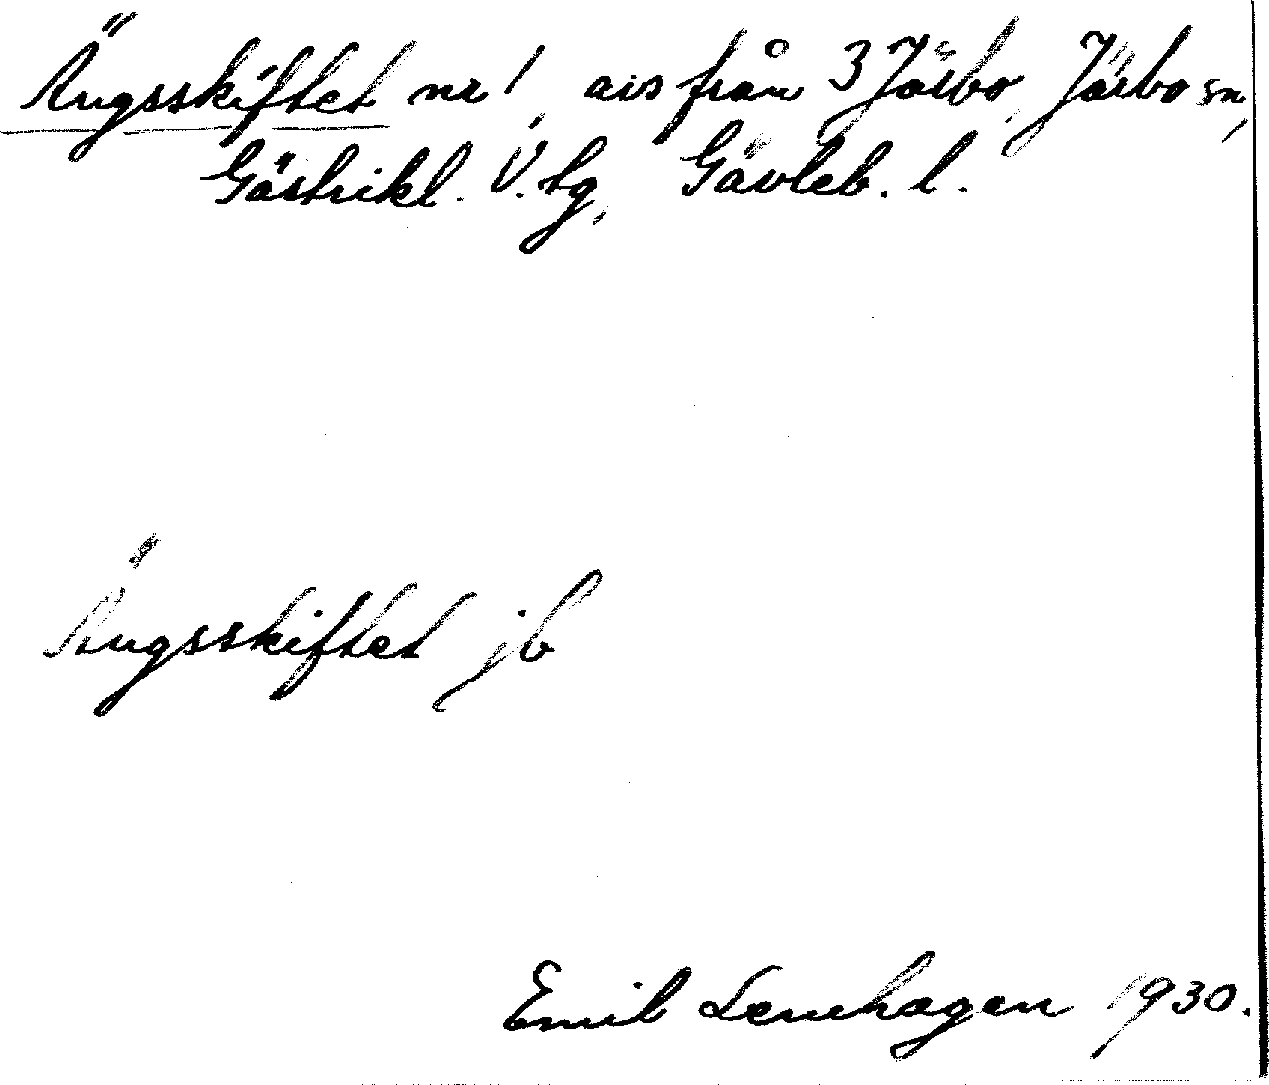 Ängsskiftet nr 1, avs från 3 Järbo, Järbo sn,
Gästrikl. V. tg, Gävleb. l.
Ängsskiftet jb
Emil Lenhagen 1930.